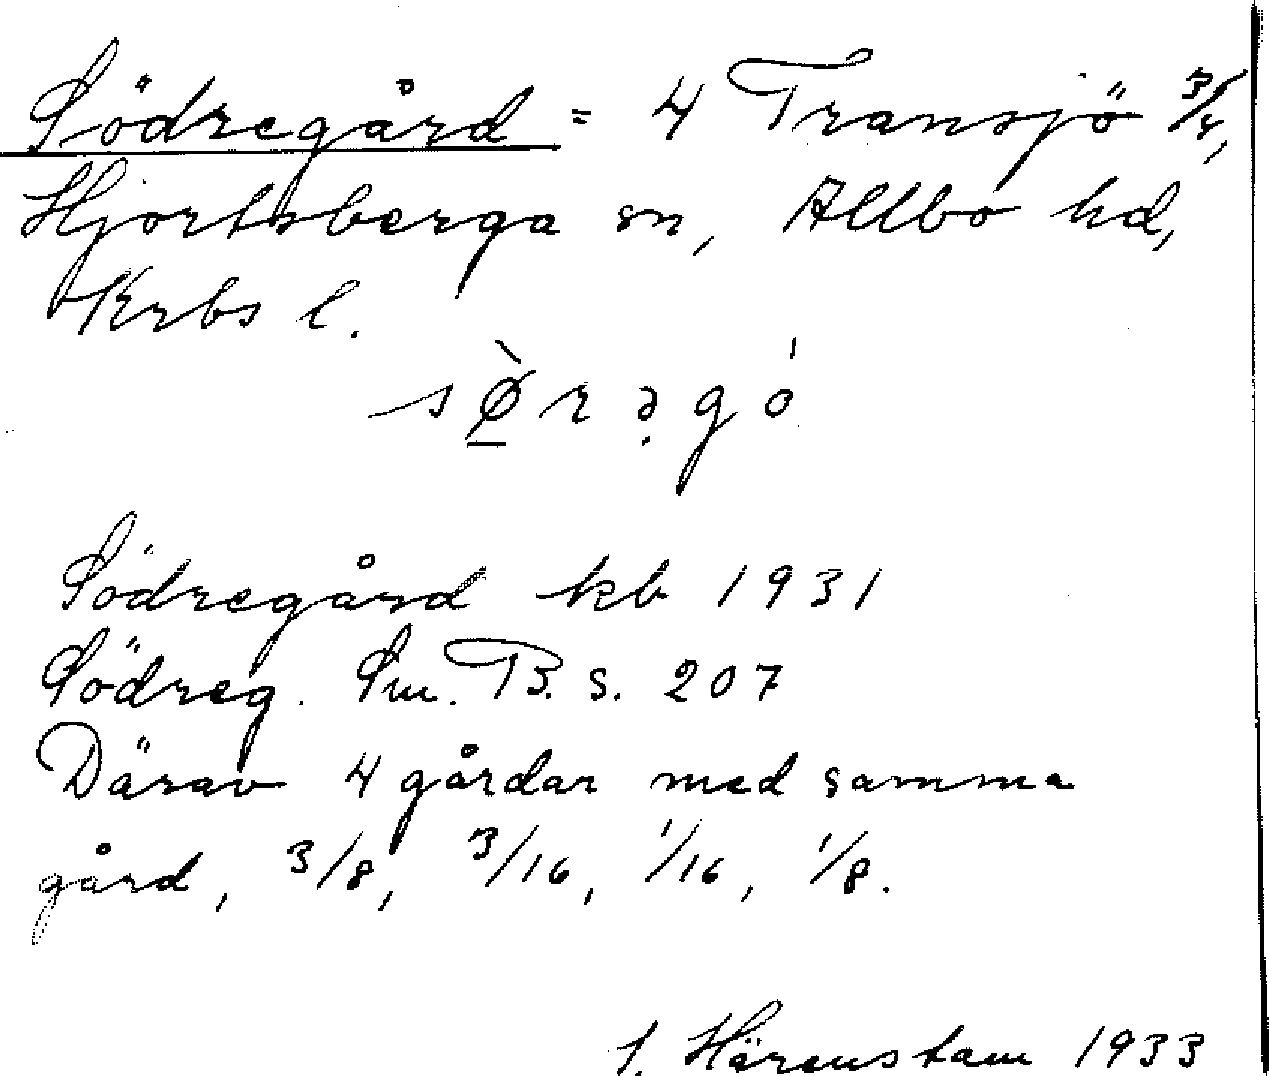 Södregård = 4 Transjö 3/4,
Hjortsberga sn, Allbo hd,
Krbs l.
sø̱̀rə̣gó
Södregård kb 1931
Södreg. Sm. B. s. 207
Därav 4 gårdar med samma
gård, 3/8, 3/16, 1/16, 1/8.
J. Härenstam 1933